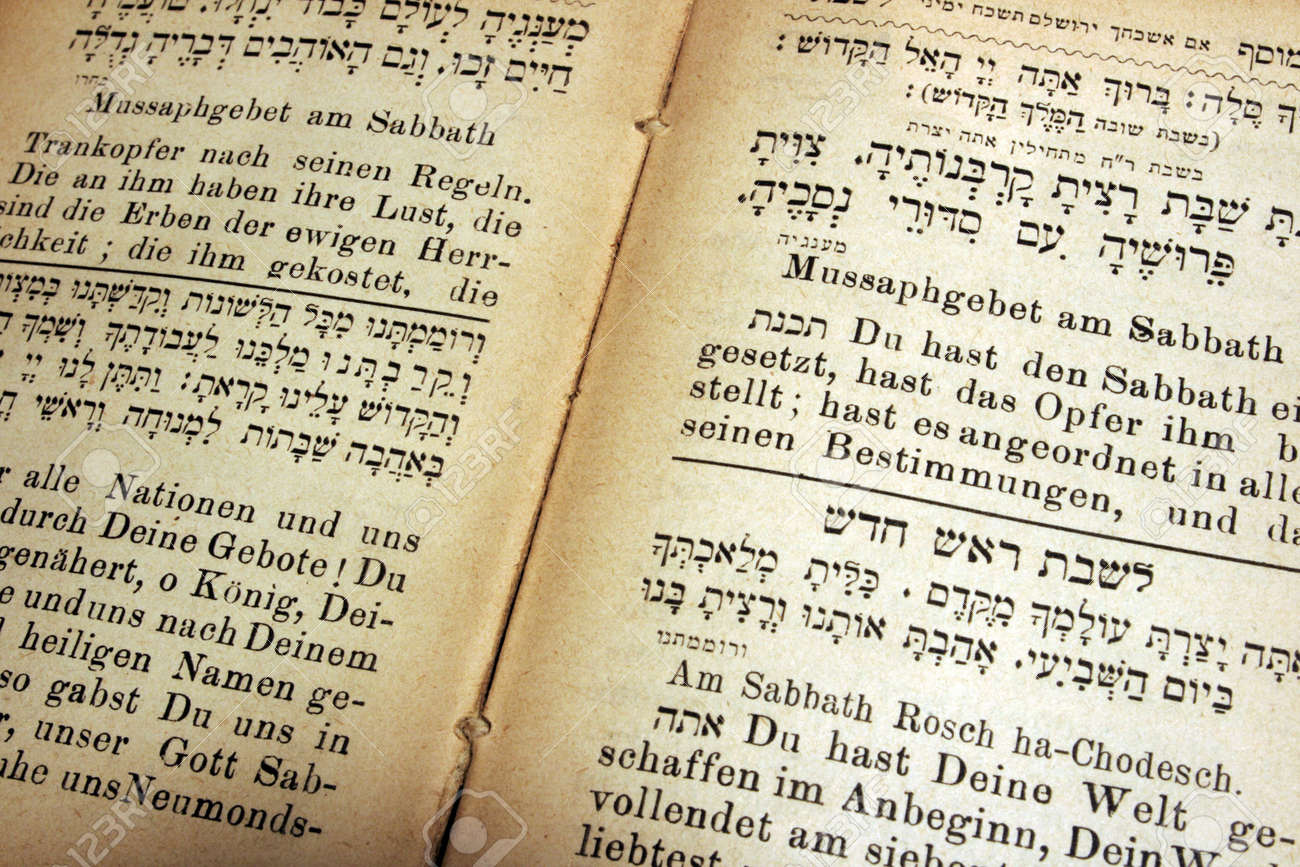 אם אשכחך ירושלם תשכח ימיני
סֶלָה: בָּרוּךְ אַתָּה יְיָ הָאֵל הַקָּדוֹשׁ:
(בשבת שובה הַמֶּלֶךְ הַקָּדוֹשׁ):
בשבת ר"ח מתחילין אתה יצרת
שַׁבָּת רָצִיתָ קָרְבְּנוֹתֶיהָ. צִוִּיתָ
פֵּרוּשֶׁיהָ עִם סִדּוּרֵי נְסָכֶיהָ.
מענגיה
Mussaphgebet am Sabbath
תכנת Du hast den Sabbath ei
gesetzt, hast das Opfer ihm b
stellt; hast es angeordnet in alle
seinen Bestimmungen, und da
לשבת ראש חדש
אַתָּה יָצַרְתָּ עוֹלָמְךָ מִקֶּדֶם. כִּלִּיתָ מְלַאכְתְּךָ
בַּיּוֹם הַשְּׁבִיעִי. אָהַבְתָּ אוֹתָנוּ וְרָצִיתָ בָּנוּ
ורוממתנו
Am Sabbath Rosch ha-Chodesch.
אתה Du hast Deine Welt ge-
schaffen im Anbeginn, Dein W
vollendet am sieben
liebtest
מְעַנְּגֶיהָ לְעוֹלָם כָּבוֹד יִנְחָלוּ. טוֹעֲמֶיהָ
חַיִּים זָכוּ. וְגַם הָאוֹהֲבִים דְּבָרֶיהָ גְדֻלָּה
בחרו
Mussaphgebet am Sabbath
Trankopfer nach seinen Regeln.
Die an ihm haben ihre Lust, die
sind die Erben der ewigen Herr-
lichkeit; die ihm gekostet, die
וְרוֹמַמְתָּנוּ מִכָּל הַלְּשׁוֹנוֹת וְקִדַּשְׁתָּנוּ בְּמִצְוֹ
וְקֵרַבְתָּנוּ מַלְכֵּנוּ לַעֲבוֹדָתֶךָ וְשִׁמְךָ
וְהַקָּדוֹשׁ עָלֵינוּ קָרָאתָ: וַתִּתֶּן לָנוּ יְיָ
בְּאַהֲבָה שַׁבָּתוֹת לִמְנוּחָה וְרָאשֵׁי
r alle Nationen und uns
durch Deine Gebote! Du
genähert, o König, Dei-
e und uns nach Deinem
heiligen Namen ge-
so gabst Du uns in
r, unser Gott Sab-
uhe uns Neumonds-
123RF